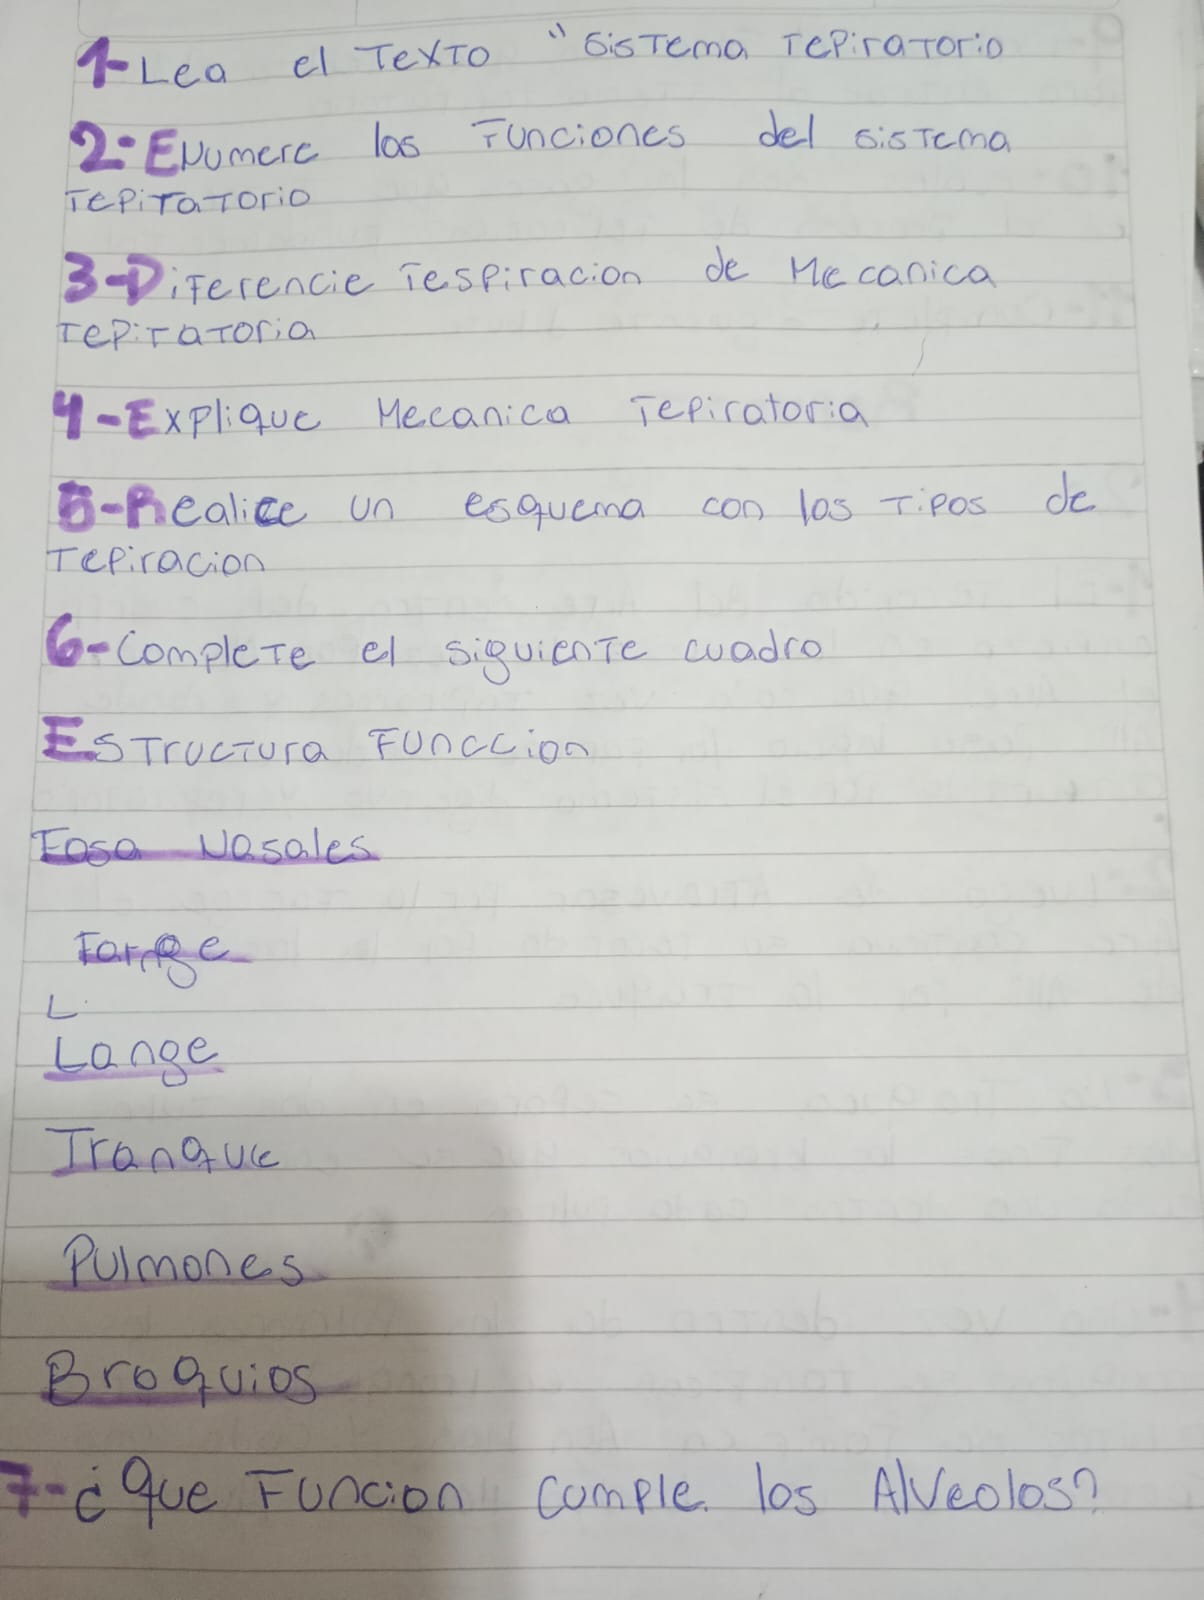 1-Lea el Texto "Sistema repiratorio
2-Enumere las Funciones del sistema
repiratorio
3-Diferencie respiracion de Mecanica
repiratoria
4-Explique Mecanica repiratoria
5-Realice un esquema con los tipos de
repiracion
6-Complete el siguiente cuadro
Estructura Funccion
Fosa Nasales
L
Lange
Tranque
Pulmones
Broquios
7-¿Que Funcion cumple los Alveolos?